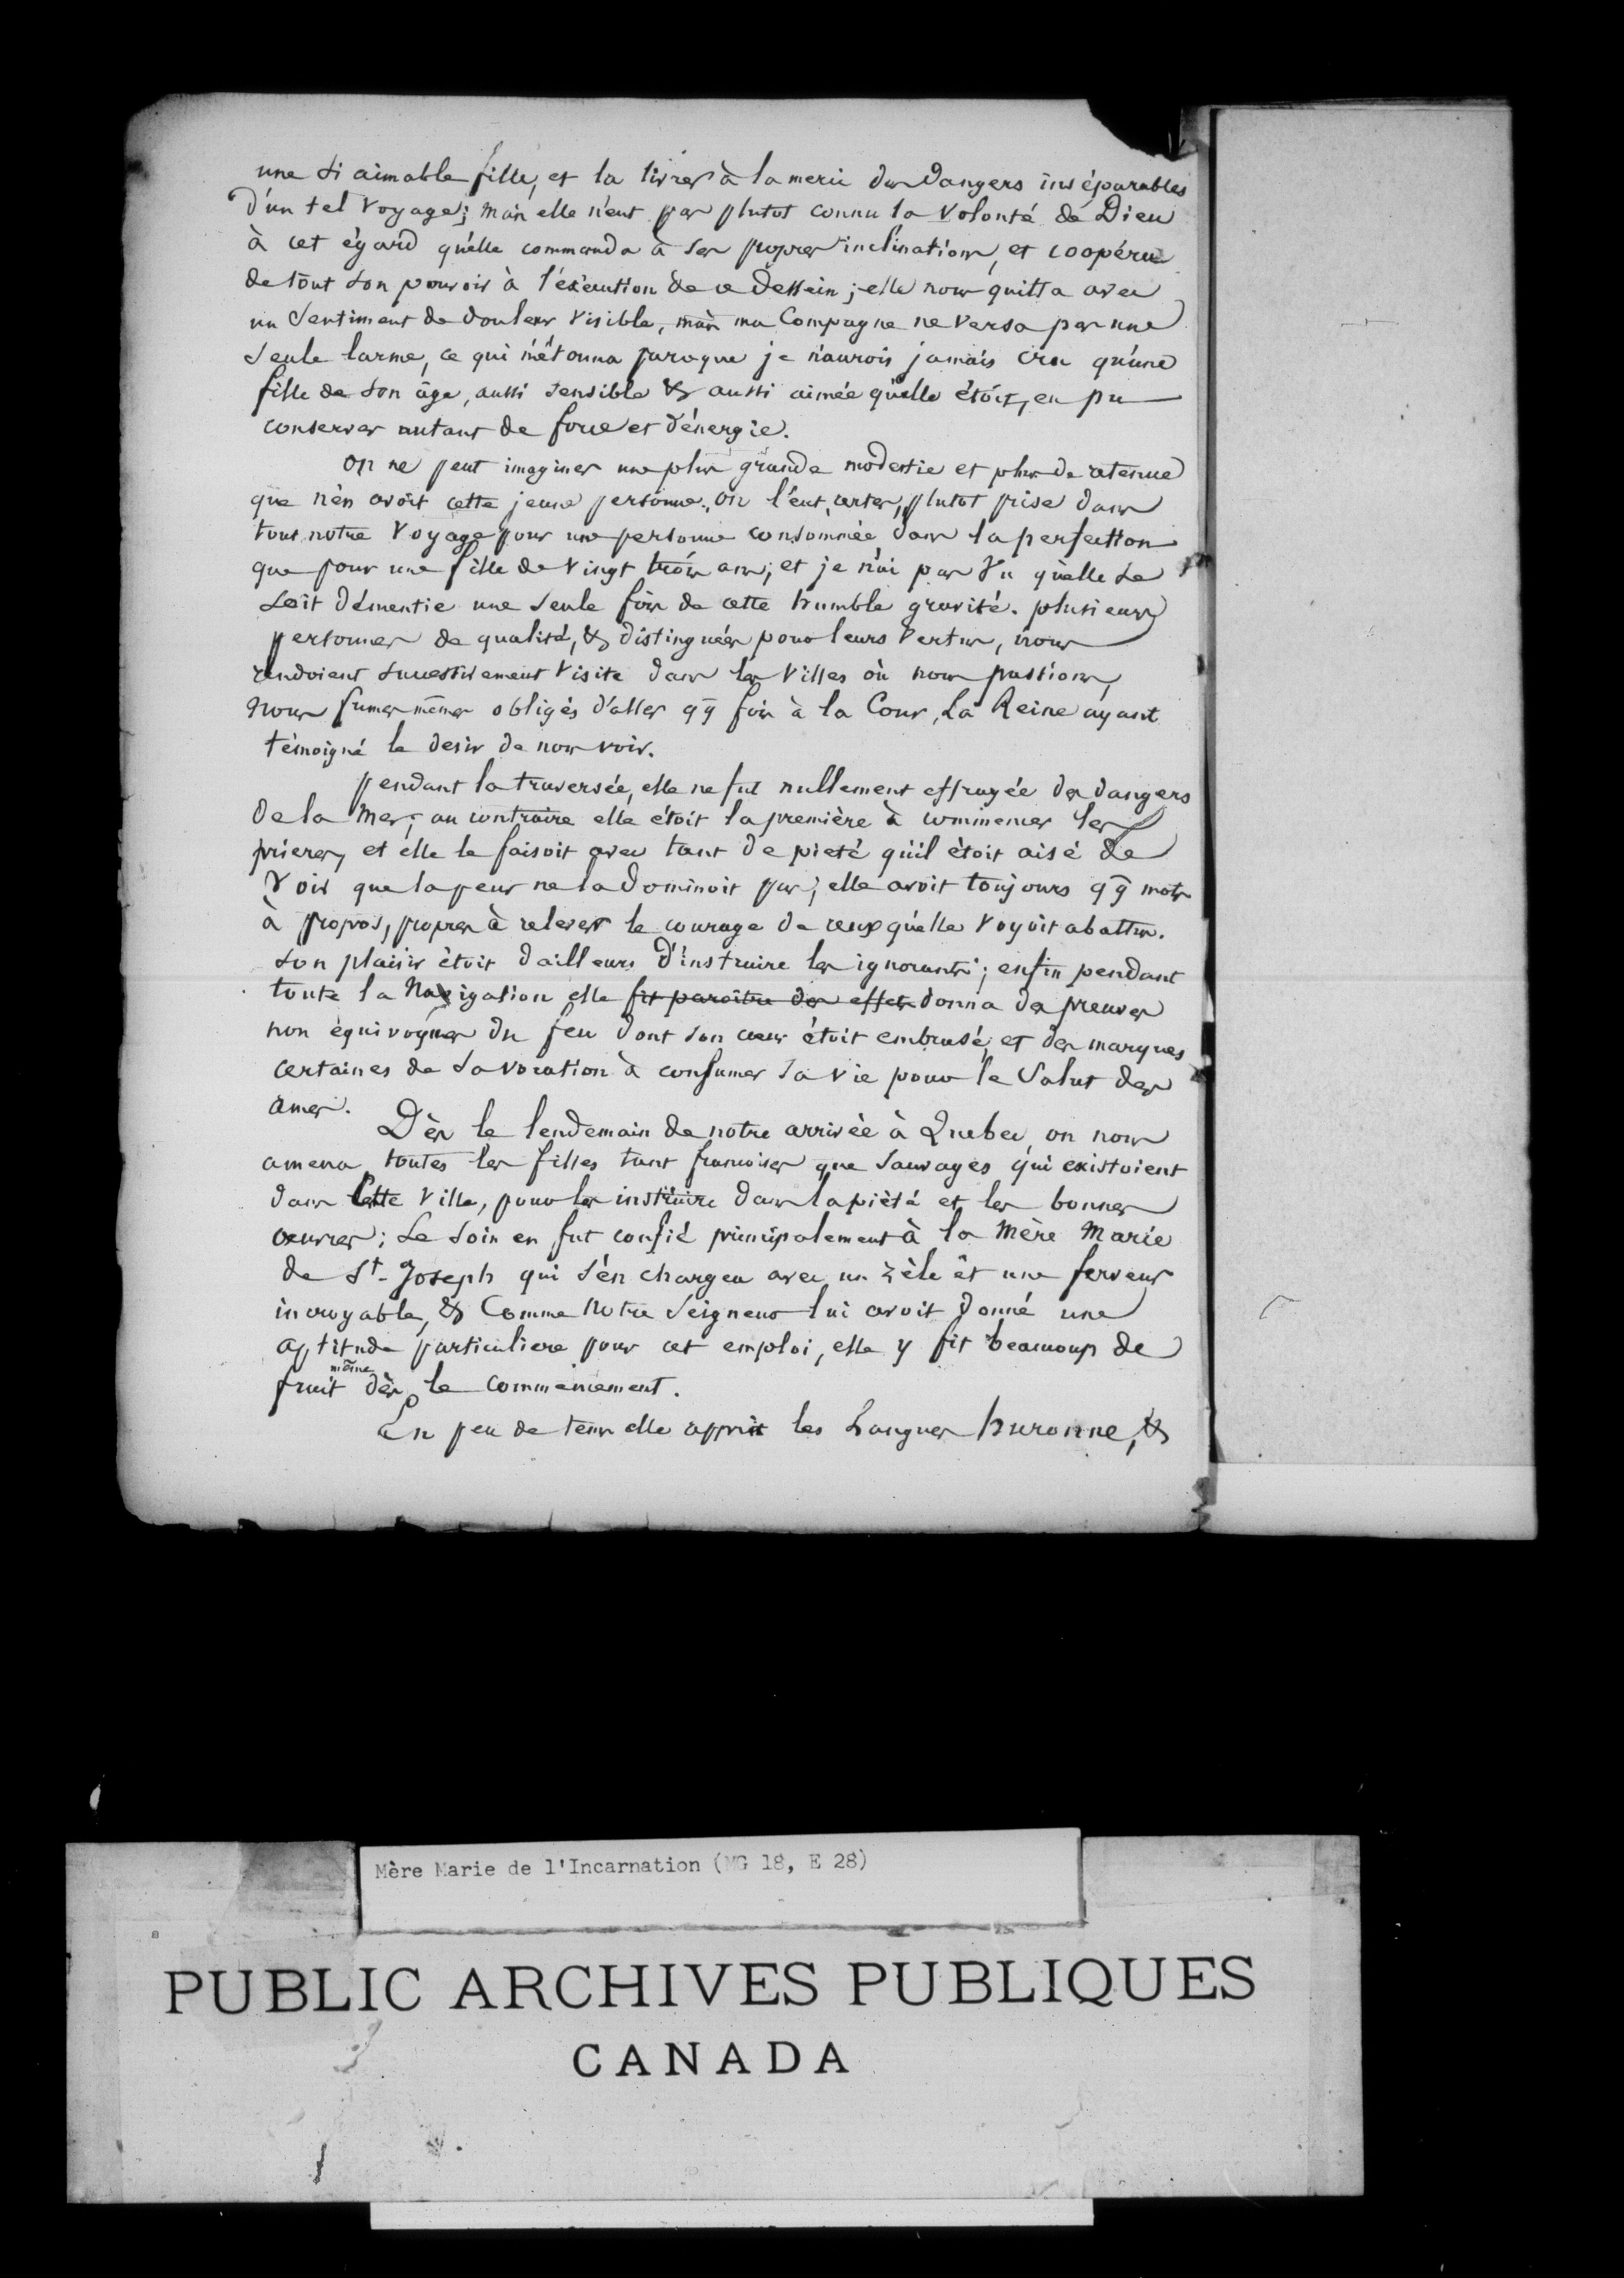 une si aimable fille, et la livrer à la merci des dangers inséparables
d'un tel voyage; mais elle n'eut pas plutot connu la volonté de Dieu
à cet égard qu'elle commanda à ses propres inclinations, et coopéra
de tout son pouvoir à l'éxécution de ce dessein; elle nous quitta avec
un sentiment de douleur visible, mais ma Compagne ne versa pas une
seule larme, ce qui m'étonna parceque je n'aurois jamais cru qu'une
fille de son âge, aussi sensible & aussi aimée qu'elle étoit, eu pu
conserver autant de force et d'énergie.
On ne peut imaginer une plus grande modestie et plus de retenue
que n'en avoit cette jeune personne. on l'eut, certes, plutot prise dans
tout notre voyage pour une personne consommée dans la perfection
que pour une fille de vingt trois ans; et je n'ai pas vu qu'elle se
soit démentie une seule fois de cette humble gravité. plusieurs
personnes de qualité, & distinguées pour leurs vertus, nous
rendoient successivement visite dans les villes où nous passions,
nous fumes mêmes obligés d'aller qq fois à la Cour, La Reine ayant
témoigné le desir de nous voir.
pendant la traversée, elle ne fut nullement effrayée des dangers
de la Mer; au contraire elle étoit la première à commencer les
prieres, et elle le faisoit avec tant de pieté qu'il étoit aisé de
voir que la peur ne la dominoit pas; elle avoit toujours qq mots
à propos, propres à relever le courage de ceux qu'elle voyoit abattus.
son plaisir étoit d'ailleurs d'instruire les ignorants; enfin pendant
toute la Navigation elle fit paroître des effets donna des preuves
non équivoques du feu dont son cœur étoit embrasé, et des marques
certaines de sa vocation à consumer sa vie pour le Salut des
ames.
Dès le lendemain de notre arrivée à Quebec, on nous
amena toutes les filles tant francoises que sauvages qui existoient
dans Cette ville, pour les instruire dans la piété et les bonnes
œuvres; Le soin en fut confié principalement à la Mère Marie
de St. Joseph qui s'en chargea avec un zèle et une ferveur
incroyable, & Comme Notre Seigneur lui avoit donné une
aptitude particuliere pour cet emploi, elle y fit beaucoup de
fruit même dès le commencement.
En peu de tems elle apprit les Langues huronne, &
Mère Marie de l'Incarnation (MG 18, E 28)
PUBLIC ARCHIVES PUBLIQUES
CANADA